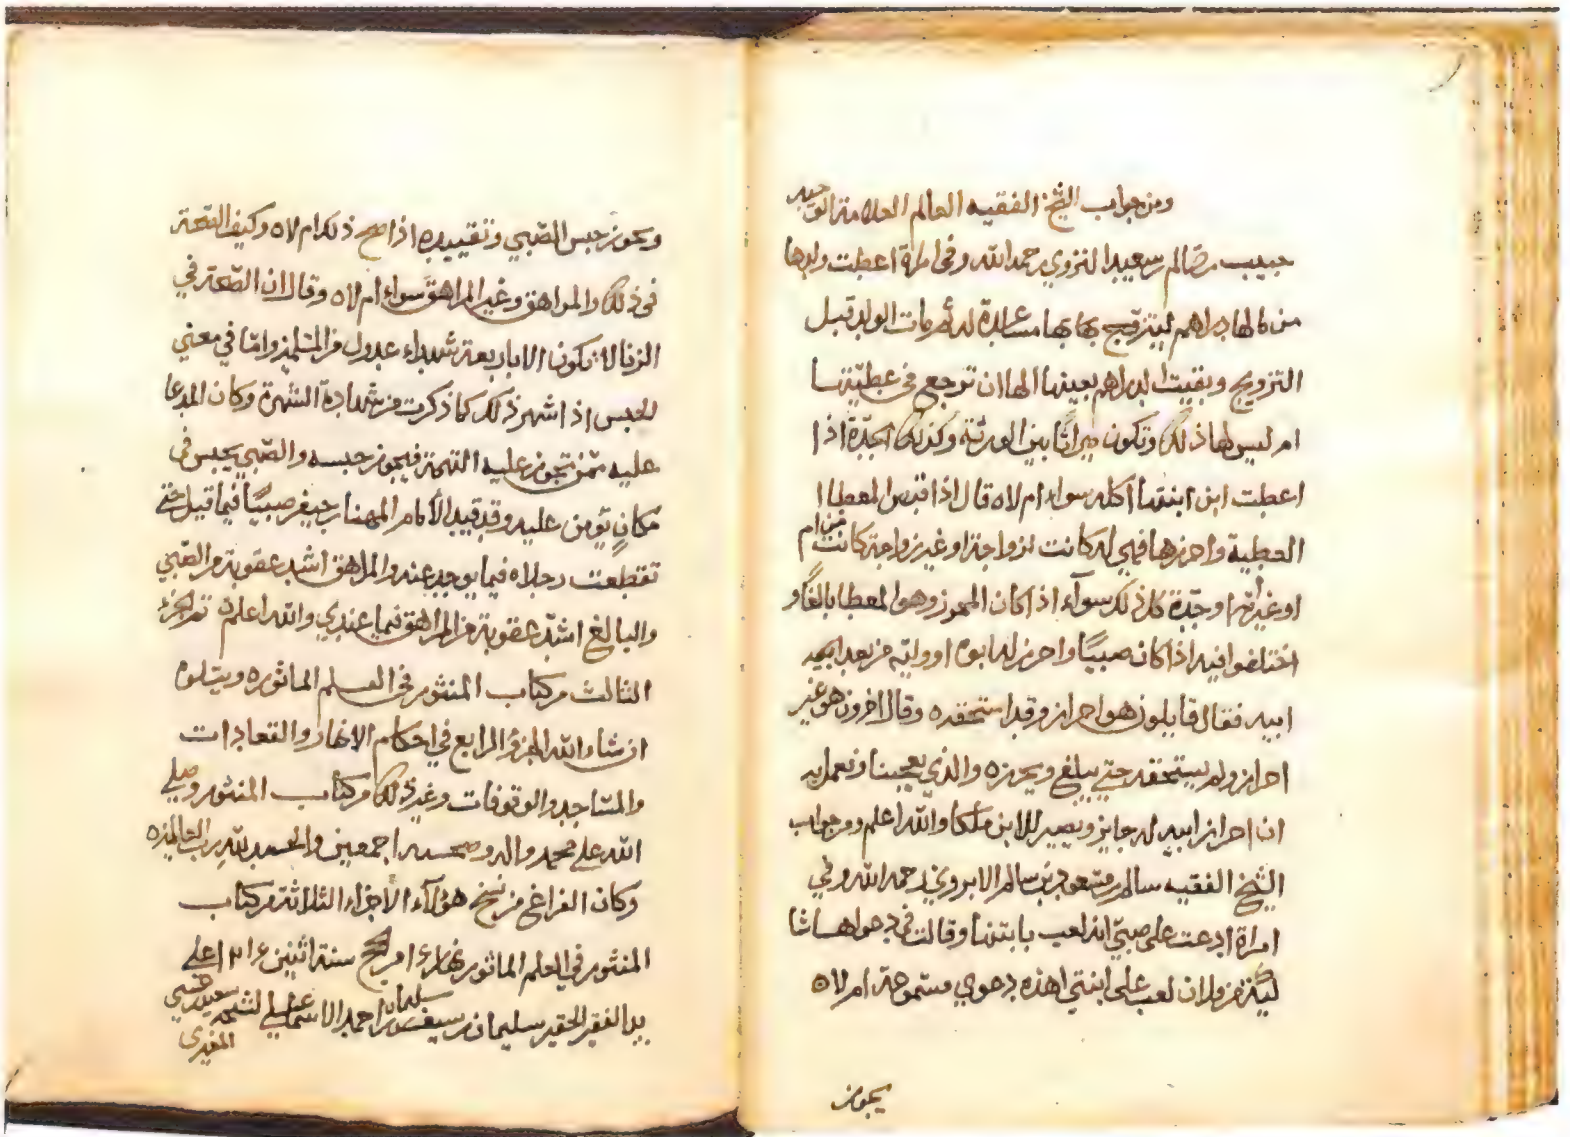 ومن جواب الشيخ الفقيه العالم العلامة الوحيد
حبيب بن سالم بن سعيد النزوي رحمه الله وفي امراة اعطت ولدها
من مالها دراهم ليتزوج بها بها مساعدة له ثم مات الولد قبل
التزويج وبقيت الدراهم بعينها الها ان ترجع في عطيتها
ام ليس لها ذلك وتكون ميراثا بين الورثة وكذلك الجدة اذا
اعطت ابن ابنتها اكله سواء ام لاه قال اذا قبض المعطا
العطية واحرزها فهي له كانت زواجة او غير زواجة كانت من ام
او غير ام او جدة كل ذلك سوآء اذا كان المحوز وهو المعطا بالغا و
اختلفوا فيه اذا كان صبيا واحرز له ابوه او واليه من بعد ابيه
ابيه فقال قايلون هو احراز وقد استحقه وقال اخرون هو غير
احراز ولم يستحقه حتى يبلغ ويحرزه والذي يعجبنا ونعمل به
ان احراز ابيه له جايز ويصير للابن ملكا والله اعلم ومن جواب
الشيخ الفقيه سالم بن مسعود بن سالم الابروي رحمه الله وفي
امراة ادعت على صبي انه لعب بابنتها وقالت في دعواها
ان لعب على ابنتي اهذه دعوى مسموعة ام لاه
يجوز
ويجوز حبس الصبي وتقييده اذا صح ذلك ام لاه وكيف الصحة
في ذلك والمراهق وغير المراهق سواء ام لاه وقال ان الصحة في
الزنا لا تكون الا باربعة شهداء عدول من المسلمين واما في معنى
الحبس اذا اشهر ذلك كما ذكرت من شهادة الشهرة وكان المدعا
عليه ممن تجوز عليه التهمة فيجوز حبسه والصبي يحبس في
مكان يؤمن عليه وقد قيد الأمام المهنا بن جيفر صبيا فيما قيل حتى
تقطعت رجلاه فيما يوجد عنه والمراهق اشد عقوبة من الصبي
والبالغ اشد عقوبة من المراهق فيما عندي والله اعلم تم الجزء
الثالث من كتاب المنثور في العلم الماثوره ويتلوه
ان شاء الله الجزؤ الرابع في احكام الانهار والقعادات
والمساجد والوقوفات وغير ذلك من كتاب المنثور وصلى
الله على محمد واله وصحبه اجمعين والحمد لله رب العالمين
وكان الفراغ من نسخ هؤلآء الأجزاء الثلاثة من كتاب
المنثور في العلم الماثور نهار الحج سنة اثنين على
يد الفقير الحقير سليمان بن سيف بن سليمان بن احمد الاسماعيلي سعيد
المغيري